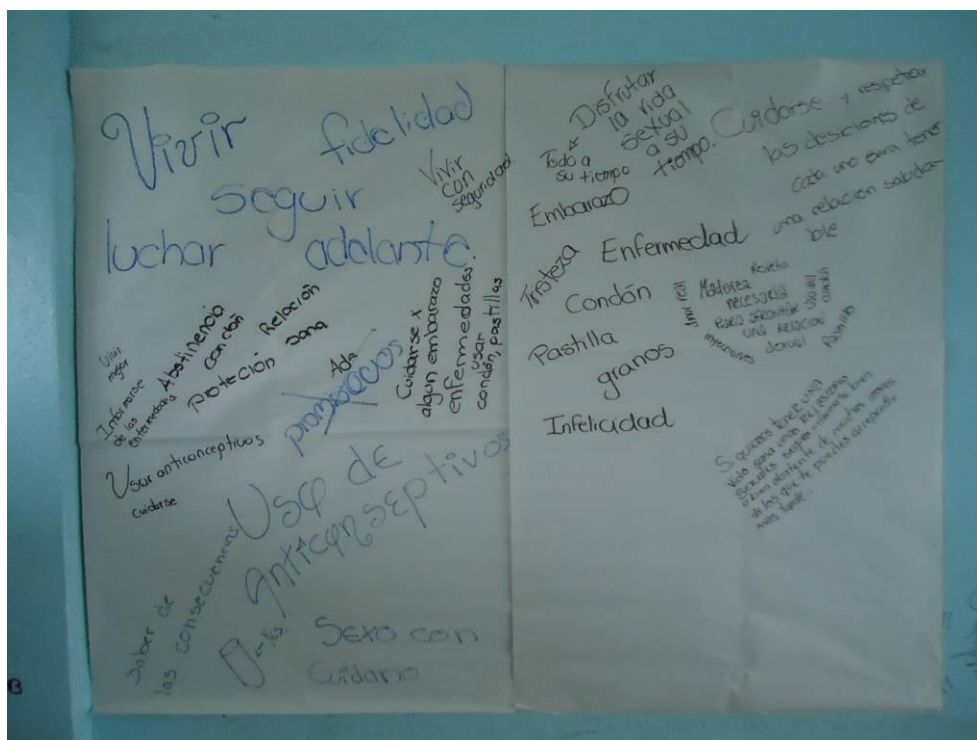 Vivir fidelidad
seguir
luchar adelante.
Vivir
con
seguridad
Vivir
mejor
Informarse
de las
enfermedades
Abstinencia
Condón
Poteción
Relación
sana
promiscuos
Cuidarse x
algun embarazo
enfermedades
usar
condón, pastillas
Usar anticonceptivos
cuidarse
Uso de
Anticonseptivos
Saber de
las consecuencias
Sexo con
Cuidano
Disfrutar
la vida
sexual
a su
tiempo.
Todo a
su tiempo
Cuidarse y respetar
las desiciones de
cada uno para tener
una relación saluda-
ble
Embarazo
Tristeza
Enfermedad
Condón
Pastilla
granos
Infelicidad
Amor real
Madurea
necesaria
Para afrontar
una relacion
sexual
condón
Pastillas
infecciones
Si quieres tener una
vida sana
de los que te puedes arrepentir
mas tarde...